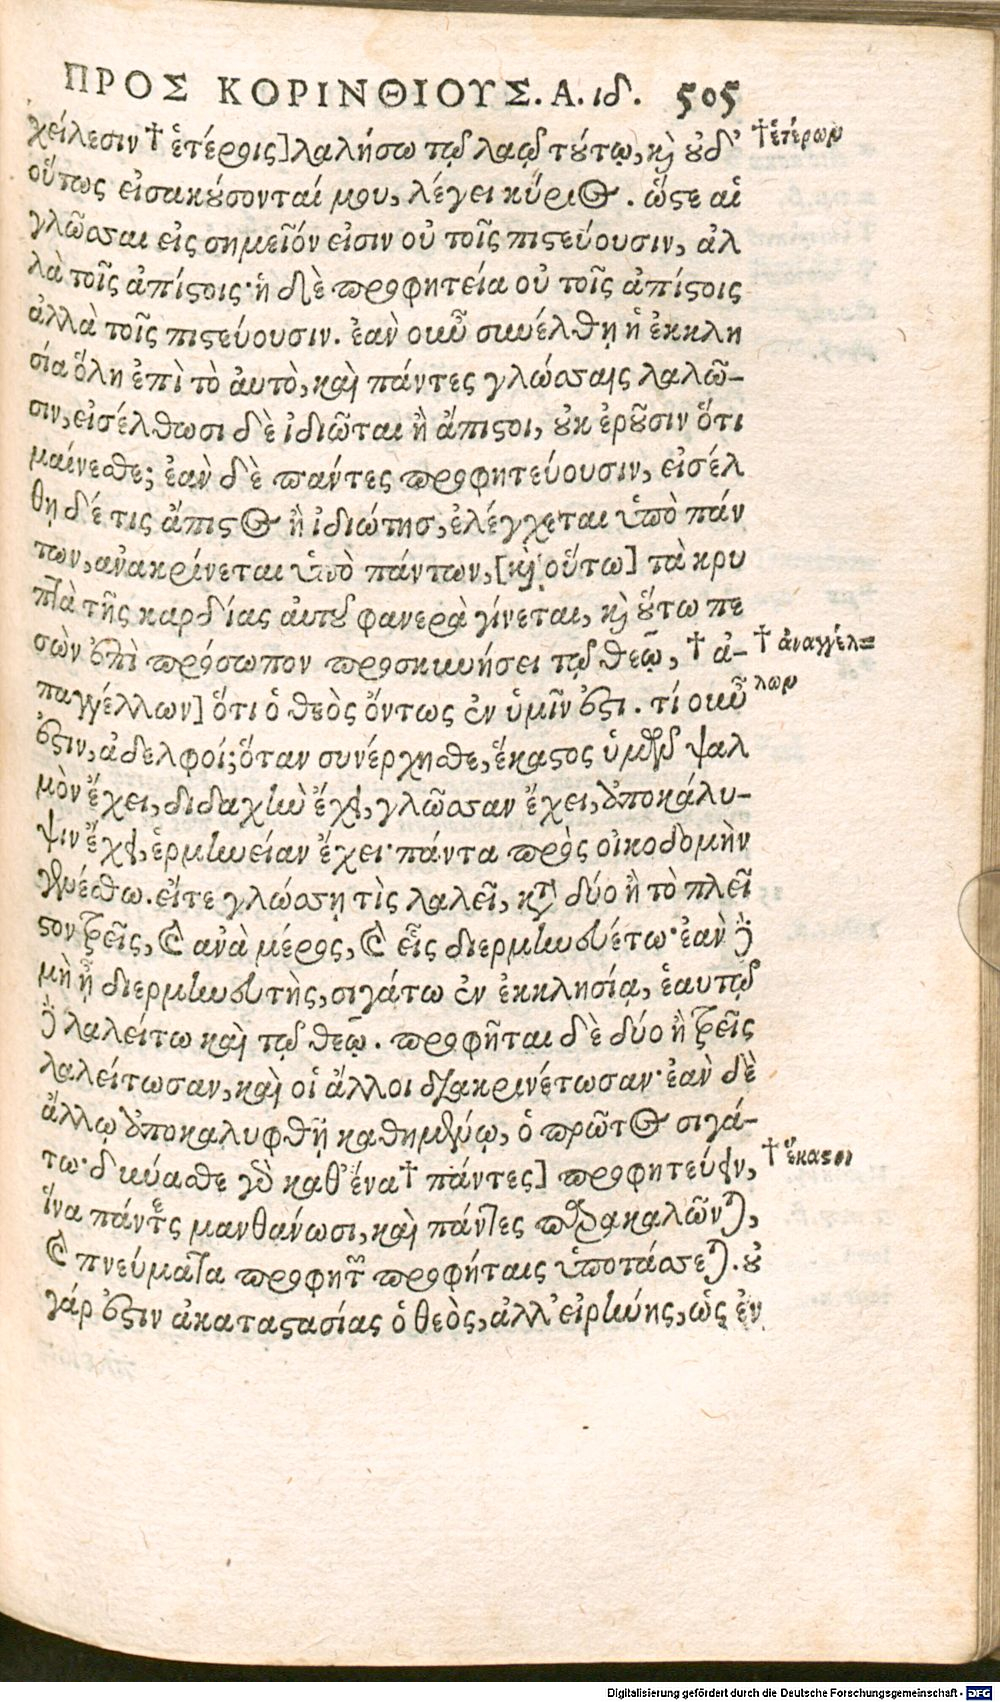 ΠΡΟΣ ΚΟΡΙΝΘΙΟΥΣ. Α. ιδ. 505
χείλεσιν † ἑτέροις] λαλήσω τῷ λαῷ τούτῳ, καὶ οὐδ' † ἑτέρων
οὕτως εἰσακούσονταί μου, λέγει κύριος. ὥστε αἱ
γλῶσσαι εἰς σημεῖόν εἰσιν οὐ τοῖς πιστεύουσιν, ἀλ
λὰ τοῖς ἀπίστοις· ἡ δὲ προφητεία οὐ τοῖς ἀπίστοις
ἀλλὰ τοῖς πιστεύουσιν. ἐὰν οὖν συνέλθῃ ἡ ἐκκλη
σία ὅλη ἐπὶ τὸ ἀυτὸ, καὶ πάντες γλώσσαις λαλῶ-
σιν, εἰσέλθωσι δὲ ἰδιῶται ἢ ἄπιστοι, οὐκ ἐροῦσιν ὅτι
μαίνεσθε; ἐὰν δὲ πάντες προφητεύουσιν, εἰσέλ
θῃ δέ τις ἄπιστος ἢ ἰδιώτησ, ἐλέγχεται ὑπὸ πάν
των, ἀνακρίνεται ὑπὸ πάντων, [καὶ οὕτω] τὰ κρυ
πτὰ τῆς καρδίας ἀυτοῦ φανερὰ γίνεται, καὶ οὕτω πε
σὼν ἐπὶ πρόσωπον προσκυνήσει τῷ θεῷ, † ἀ- † ἀναγγέλ=
παγγέλλων] ὅτι ὁ θεὸς ὄντως ἐν ὑμῖν ἐστι. τί οὖν λων
ἐστιν, ἀδελφοί; ὅταν συνέρχησθε, ἕκαστος ὑμῶν ψαλ
μὸν ἔχει, διδαχὴν ἔχει, γλῶσσαν ἔχει, ἀποκάλυ-
ψιν ἔχει, ἑρμηνείαν ἔχει· πάντα πρὸς οἰκοδομὴν
γενέσθω. εἴτε γλώσσῃ τὶς λαλεῖ, κατὰ δύο ἢ τὸ πλεῖ
στον τρεῖς, καὶ ανὰ μέρος, καὶ εἷς διερμηνευέτω· ἐὰν δὲ
μὴ ᾖ διερμηνευτὴς, σιγάτω ἐν ἐκκλησίᾳ, ἑαυτῷ
δὲ λαλείτω καὶ τῷ θεῷ. προφῆται δὲ δύο ἢ τρεῖς
λαλείτωσαν, καὶ οἱ ἄλλοι διακρινέτωσαν· ἐὰν δὲ
ἄλλῳ ἀποκαλυφθῇ καθημένῳ, ὁ πρῶτος σιγά-
τω· δύνασθε γὰρ καθ' ἕνα † πάντες] προφητεύειν, † ἕκαστοι
ἵνα πάντες μανθάνωσι, καὶ πάντες παρακαλῶνται,
καὶ πνεύματα προφητῶν προφήταις ὑποτάσσεται. οὐ
γάρ ἐστιν ἀκαταστασίας ὁ θεὸς, ἀλλ' εἰρήνης, ὡς ἐν
Digitalisierung gefördert durch die Deutsche Forschungsgemeinschaft - DFG